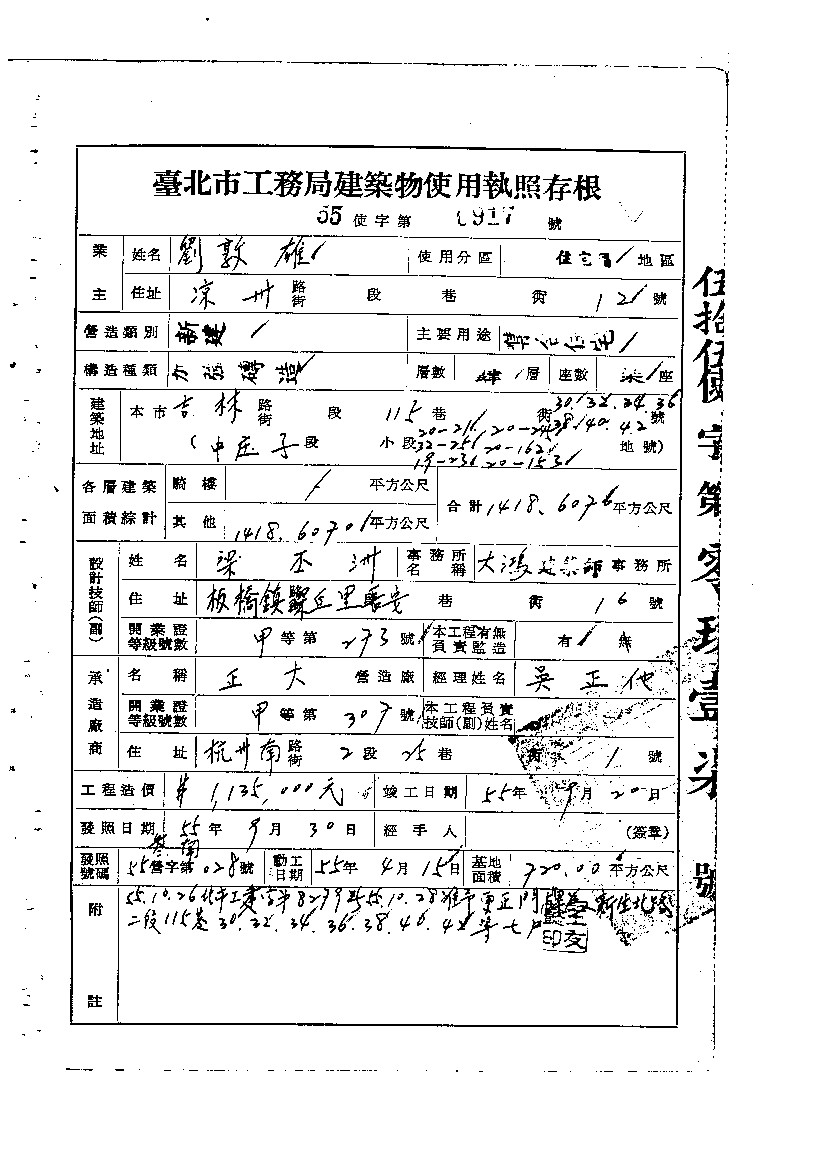 臺北市工務局建築物使用執照存根
55 使字第 0917 號
業主 姓名 劉敦雄 使用分區 住宅 地區
住址 涼州 路街 段 巷 衖 121 號
營造類別 新建 主要用途 集合住宅
構造種類 加強磚造 層數 肆 層 座數 柒 座
建築地址 本市 吉林 路街 段 115 巷 衖 30.32.34.36 38.40.42 號
(中庄子 段 小段 20-216 地號)
各層建築面積綜計 騎樓 / 平方公尺 合計 1418.6076 平方公尺
其他 平方公尺
設計技師(副) 姓名 梁丕洲 事務所名稱 大鴻建築師 事務所
住址 板橋鎮 里 巷 衖 16 號
開業證等級號數 甲 等第 273 號 本工程有無負責監造 有 無
承造廠商 名稱 正大 營造廠 經理姓名 吳正他
開業證等級號數 甲 等第 307 號 本工程負責技師(副)姓名
住址 杭州南 路街 2 段 25 巷 衖 1 號
工程造價 1,135,000元 竣工日期 55年 9月 20日
發照日期 55年 9月 30日 經手人 (簽章)
發照號碼 55營字第 028號 動工日期 55年 4月 15日 基地面積 720.00 平方公尺
附註 55.10.26北市工 字第8279號55.10.28准予更正門牌為新生北路
二段115巷30.32.34.36.38.40.42等七戶
伍拾伍使字第零玖壹柒號